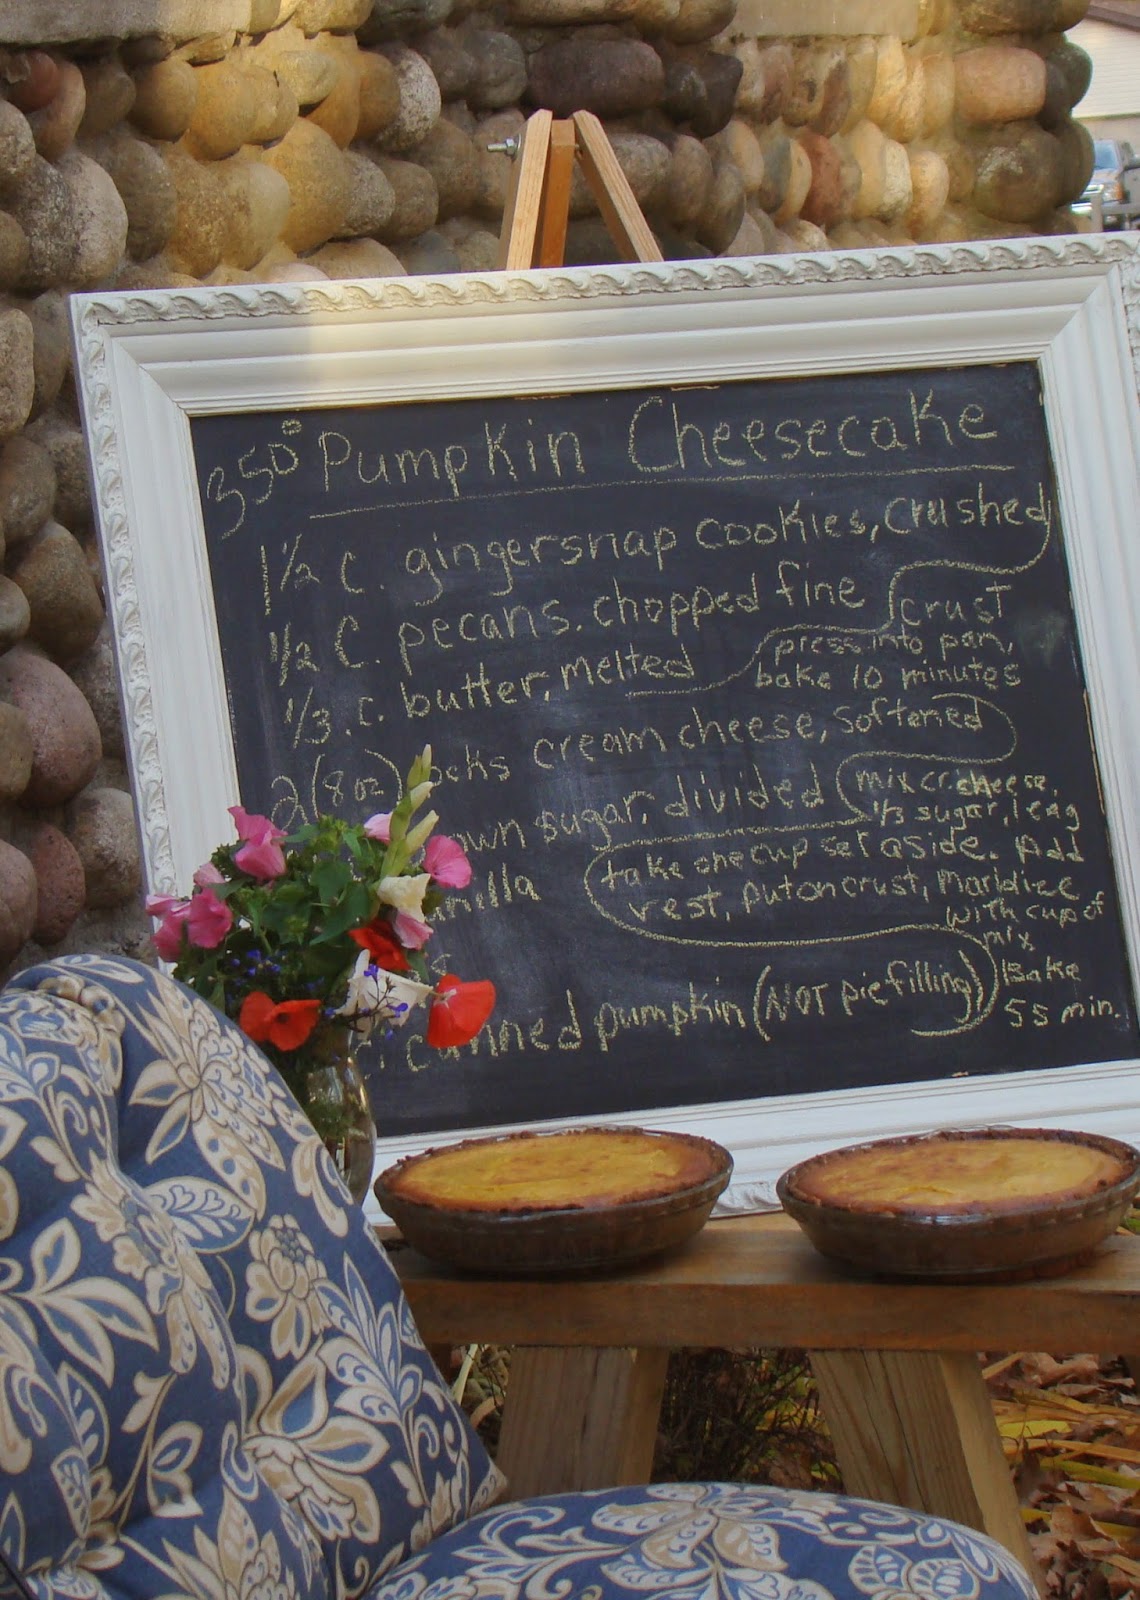 350° Pumpkin Cheesecake
1 1/2 c. gingersnap cookies, crushed
1/2 C. pecans. chopped fine
1/3 c. butter, melted
crust
press into pan,
bake 10 minutes
2 (8 oz) cream cheese, softened
sugar, divided
mix cr. cheese,
1/3 sugar, 1 egg
take one cup set aside. Add
rest, put on crust,
with cup of
mix
Bake
55 min.
canned pumpkin (NOT pie filling)